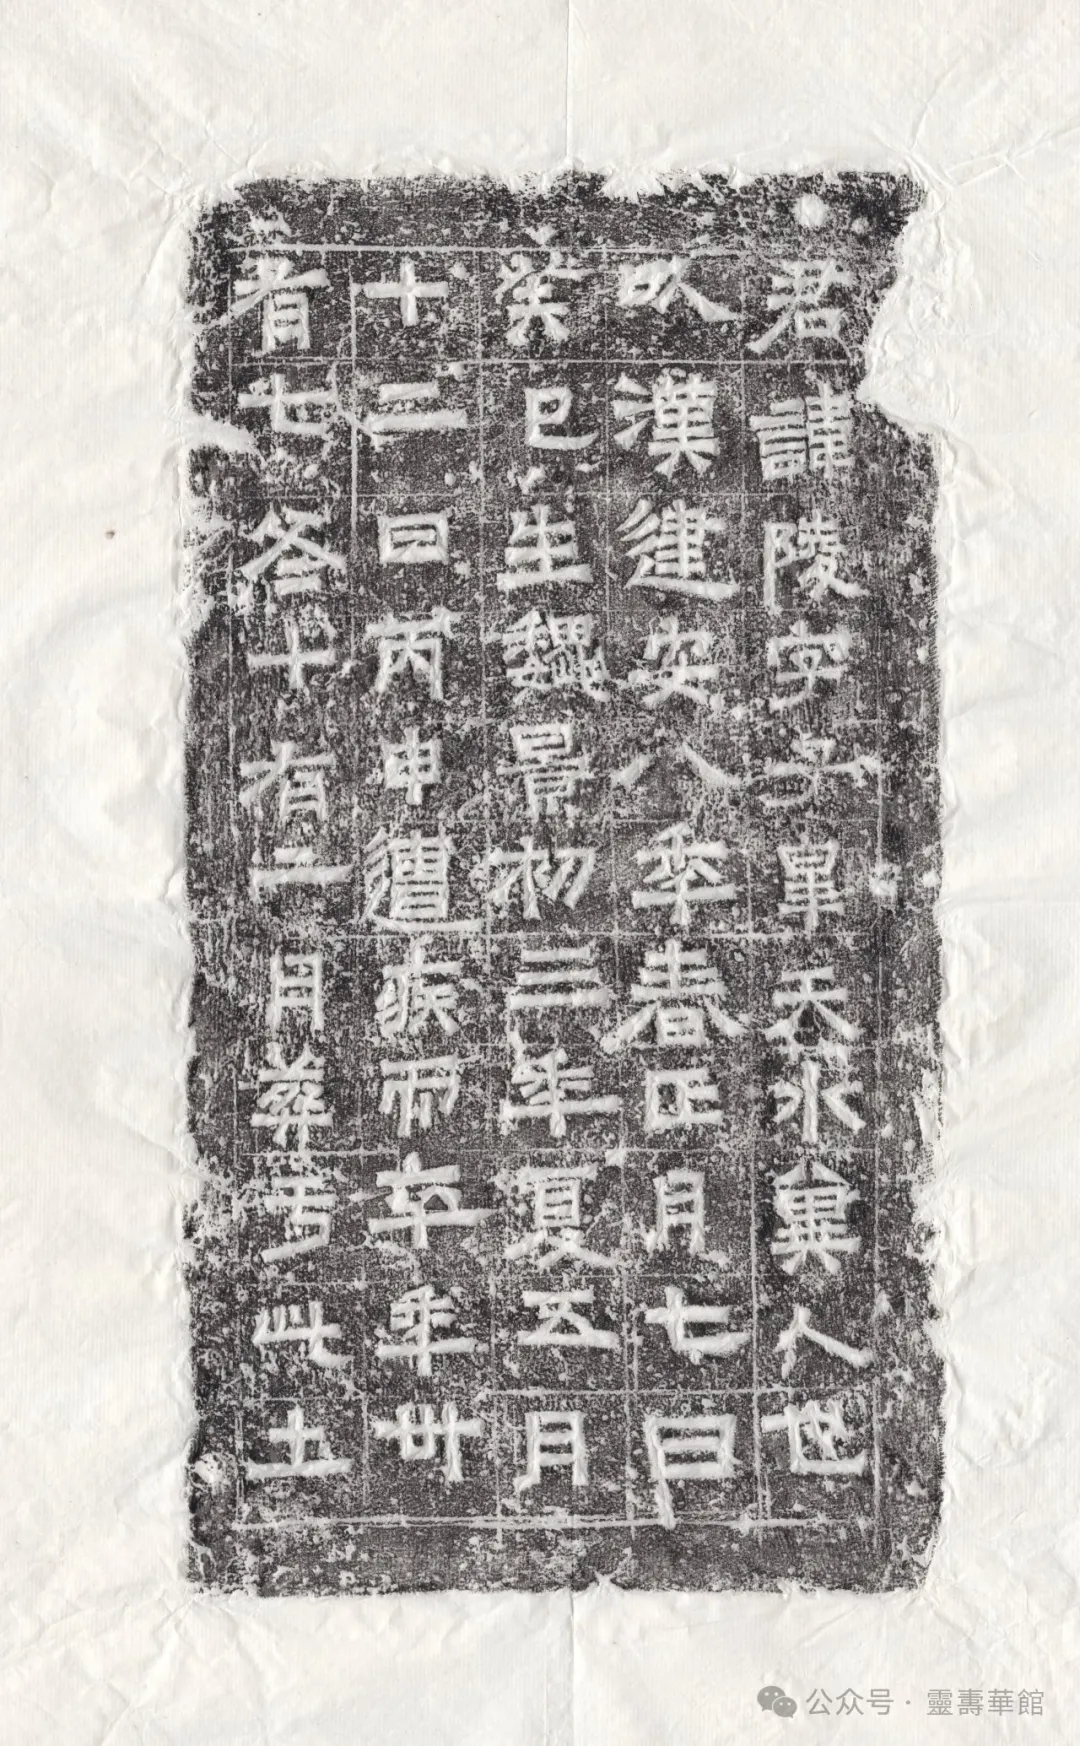 君諱陵字子皐天水冀人也
以漢建安八年春正月七日
癸巳生魏景初三年夏五月
十二日丙申遭疾而卒年卅
有七冬十有二月葬于此土
公众号·靈壽華館